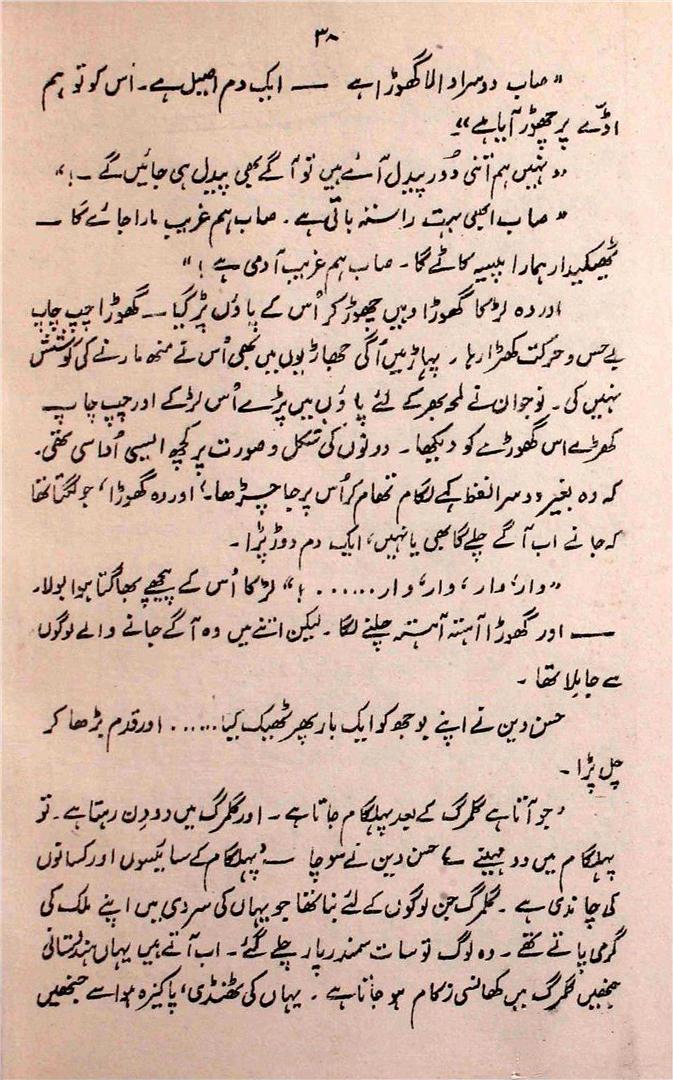 ۳۸
"صاب دوسرا والا گھوڑا ہے — ایک دم اصیل ہے۔ اس کو تو ہم
اڈّے پر چھوڑ آیا ہے"۔
"نہیں ہم اتنی دُور پیدل آئے ہیں تو آگے بھی پیدل ہی جائیں گے ۔!"
"صاب ابھی بہت راستہ باقی ہے۔ صاب ہم غریب مارا جائے گا —
ٹھیکیدار ہمارا پیسہ کاٹے گا۔ صاب ہم غریب آدمی ہے!"
اور وہ لڑکا گھوڑا وہیں چھوڑ کر اُس کے پاؤں پڑ گیا — گھوڑا چپ چاپ
بے حس و حرکت کھڑا رہا۔ پہاڑ میں اُگی جھاڑیوں میں بھی اُس نے منھ مارنے کی کوشش
نہیں کی۔ نوجوان نے لمحہ بھر کے لئے پاؤں میں پڑے اُس لڑکے اور چپ چاپ
کھڑے اس گھوڑے کو دیکھا۔ دونوں کی شکل و صورت پر کچھ ایسی اُداسی تھی۔
کہ وہ بغیر دوسرا لفظ کہے لگام تھام کر اُس پر جا چڑھا۔' اور وہ گھوڑا' جو لگتا تھا
کہ جانے اب آگے چلے گا بھی یا نہیں، ایک دم دوڑ پڑا۔
"وار، وار، وار، وار......!" لڑکا اُس کے پیچھے بھاگتا ہوا بولا۔
— اور گھوڑا آہستہ آہستہ چلنے لگا۔ لیکن اتنے میں وہ آگے جانے والے لوگوں
سے جا مِلا تھا۔
حسن دین نے اپنے بوجھ کو ایک بار پھر ٹھیک کیا...... اور قدم بڑھا کر
چل پڑا۔
'جو آتا ہے گلمرگ کے بعد پہلگام جاتا ہے۔ اور گلمرگ میں دو دِن رہتا ہے۔ تو
پہلگام میں دو مہینے' حسن دین نے سوچا — 'پہلگام کے سائیسوں اور کسانوں
کی چاندی ہے۔ گلمرگ جن لوگوں کے لئے بنا تھا جو یہاں کی سردی میں اپنے ملک کی
گرمی پاتے تھے۔ وہ لوگ تو سات سمندر پار چلے گئے۔ اب آتے ہیں یہاں ہندُستانی
جنھیں گلمرگ میں کھانسی زکام ہو جاتا ہے۔ یہاں کی ٹھنڈی' پاکیزہ ہوا سے جنھیں